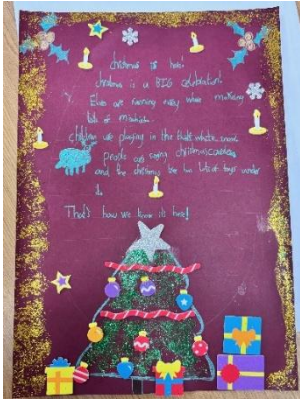 christmas is here!
christmas is a BIG celebration!
Elves are running every where making
lots of mischeif.
children are playing in the thick white snow
people are singing christmas carols
and the christmas tree has lots of toys under
That's how we know its here!